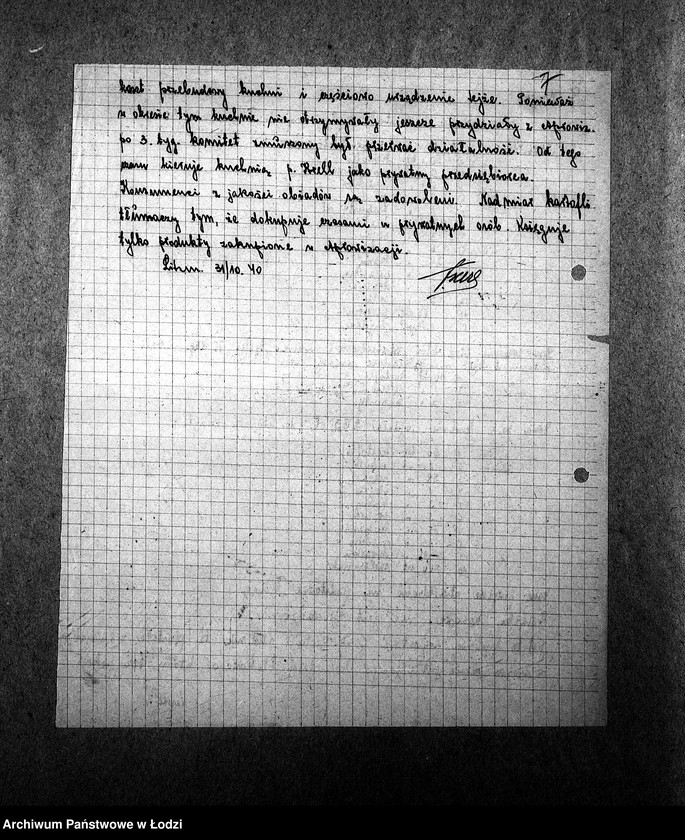 7
koszt przebudowy kuchni i częściowo urządzenie tejże. Ponieważ
w okresie tym kuchnie nie otrzymywały jeszcze przydziały z Aprowiz.
po 3. tyg. komitet zmuszony był przerwać działalność. Od tego
czasu kieruje kuchnią p. Krell jako prywatny przedsiębiorca.
Konsumenci z jakości obiadów są zadowoleni. Nadmiar kartofli
tłumaczy tym, że dokupuje czasami u prywatnych osób. Księguje
tylko produkty zakupione w Aprowizacji.
31/10. 40
Archiwum Państwowe w Łodzi